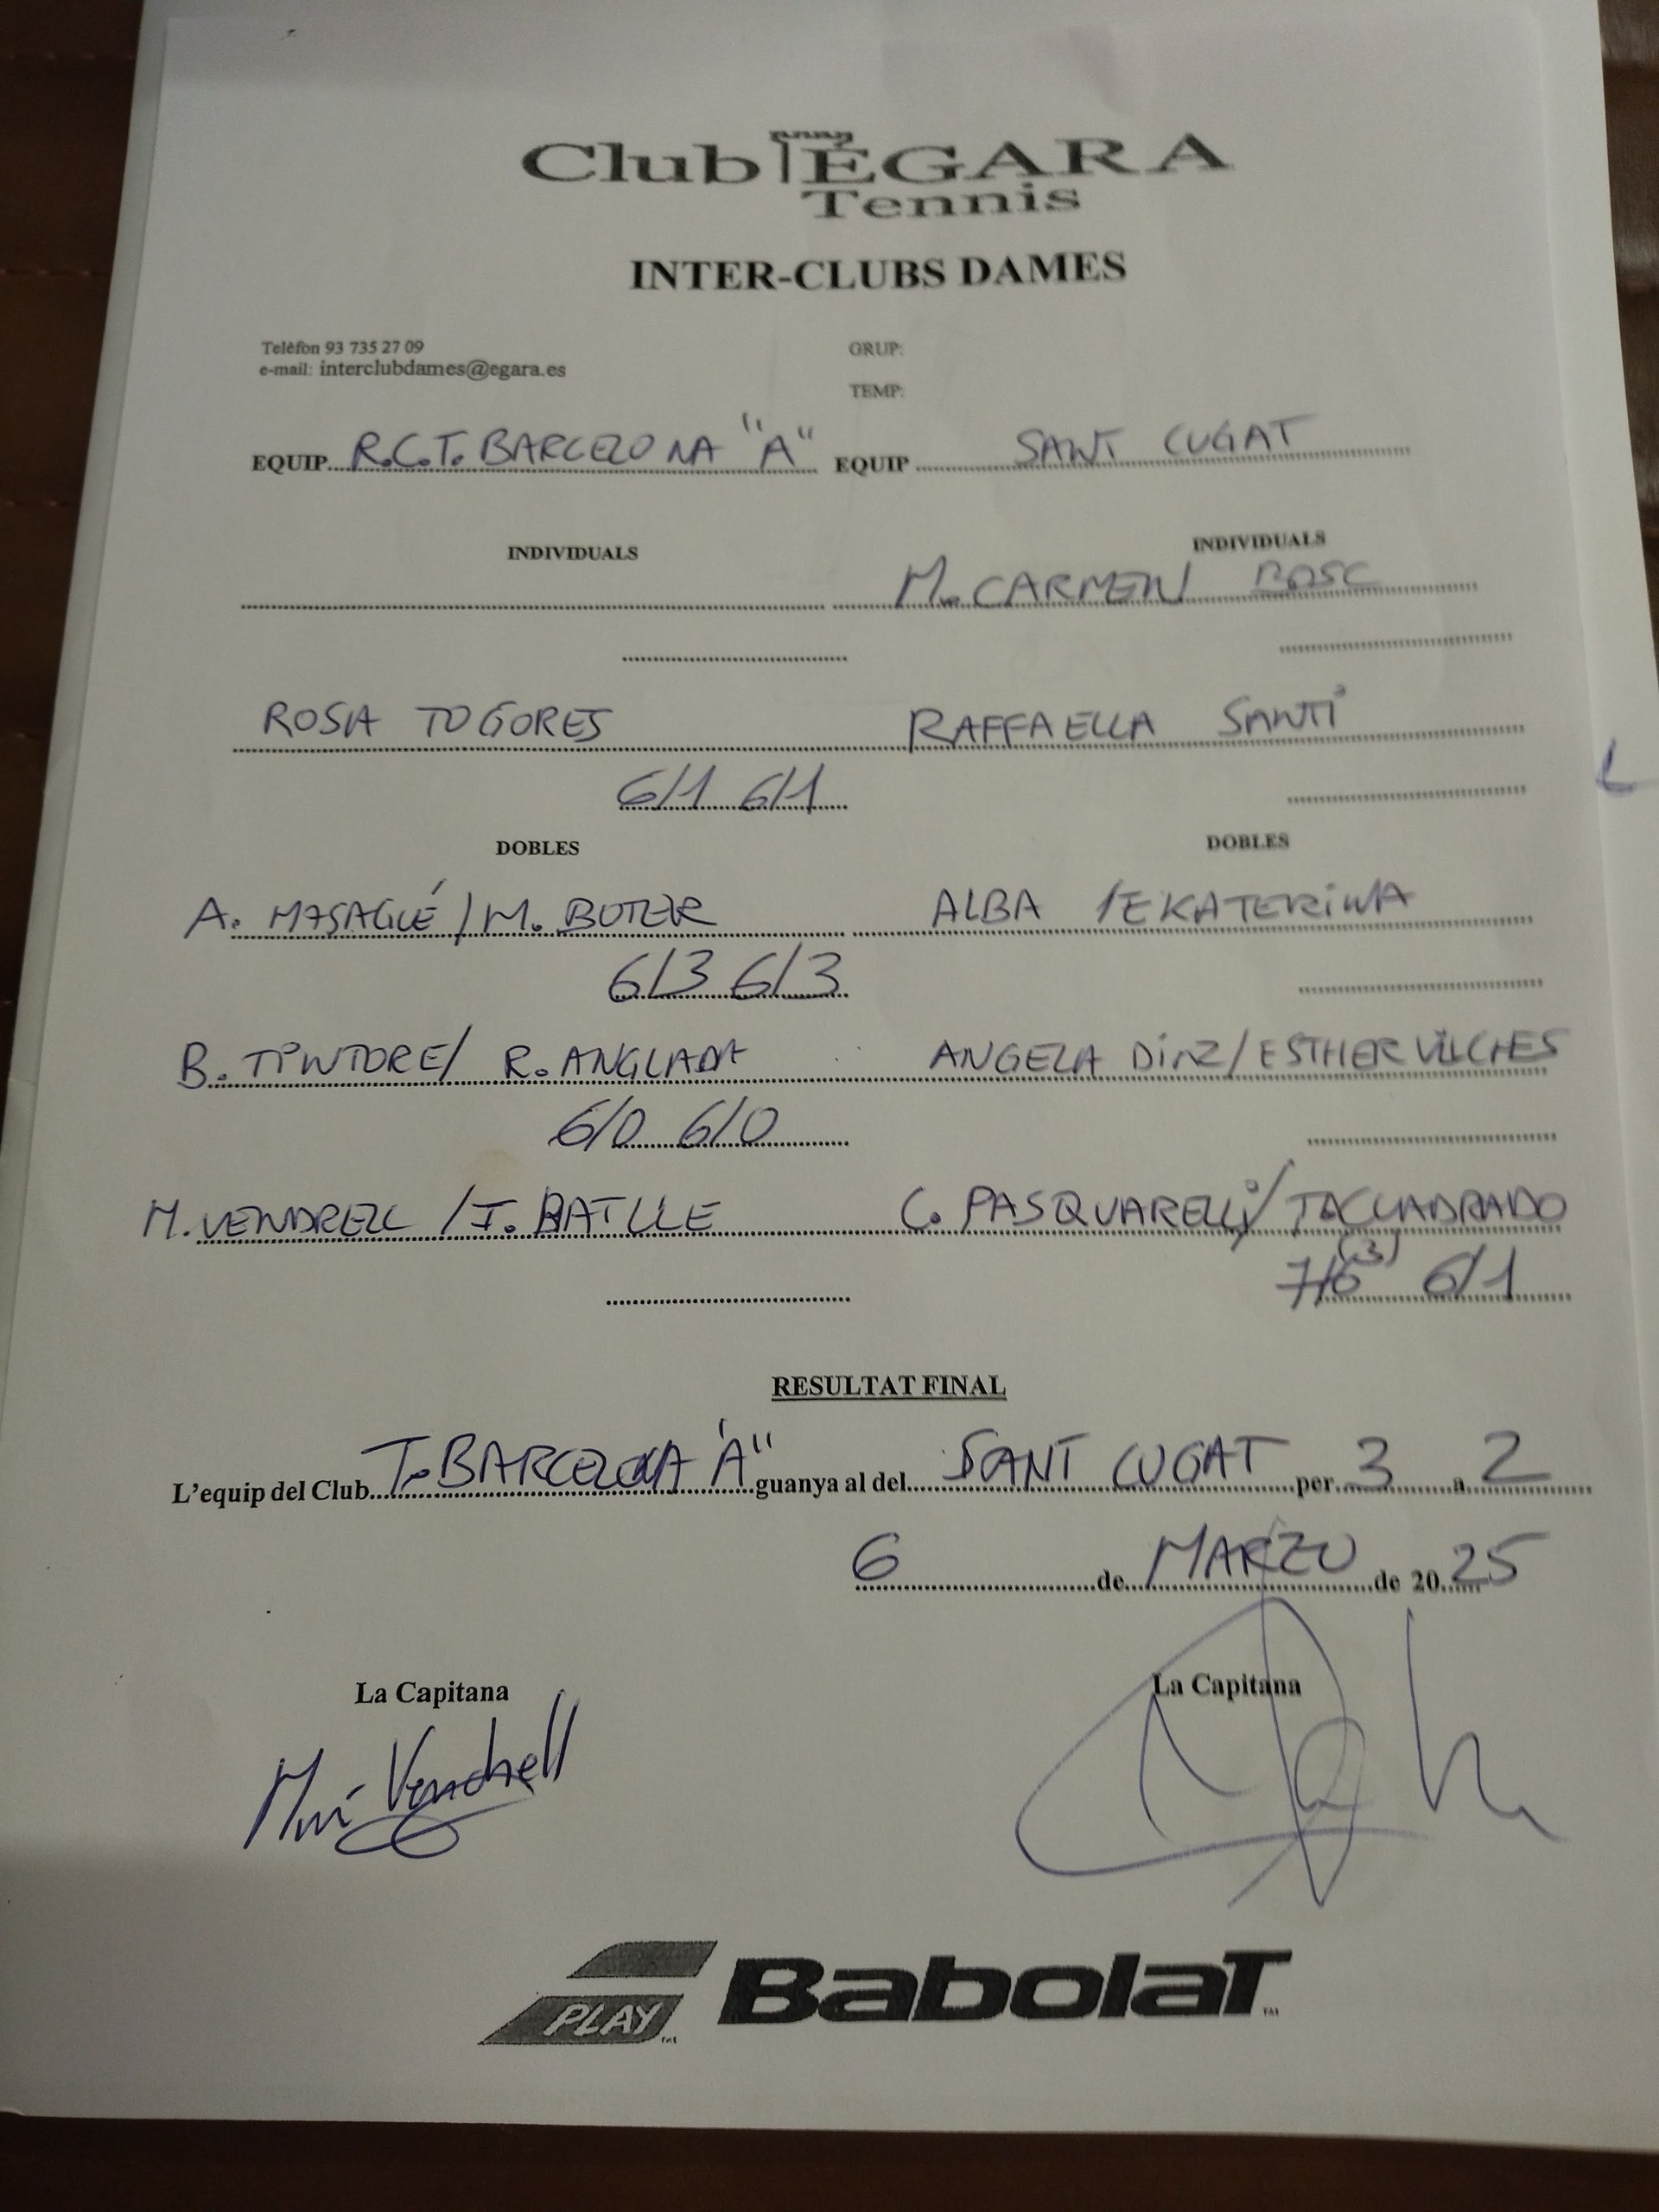 Club ÈGARA
Tennis
INTER-CLUBS DAMES
Telèfon 93 735 27 09
e-mail: interclubdames@egara.es
GRUP:
TEMP:
EQUIP R.C.T. BARCELONA "A" EQUIP SANT CUGAT
INDIVIDUALS INDIVIDUALS
M. CARMEN BOSC
ROSA TOGORES RAFFAELLA SANTI
6/1 6/1
DOBLES DOBLES
A. MASAGUÉ / M. BOTER ALBA / EKATERINA
6/3 6/3
B. TINTORE / R. ANGLADA ANGELA DIAZ / ESTHER VILCHES
6/0 6/0
M. VENDRELL / I. BATLLE C. PASQUARELLI / TACUADRADO
7/6 (3) 6/1
RESULTAT FINAL
L'equip del Club T. BARCELONA "A" guanya al del SANT CUGAT per 3 a 2
6 de MARZO de 20 25
La Capitana La Capitana
Vendrell
PLAY Babolat